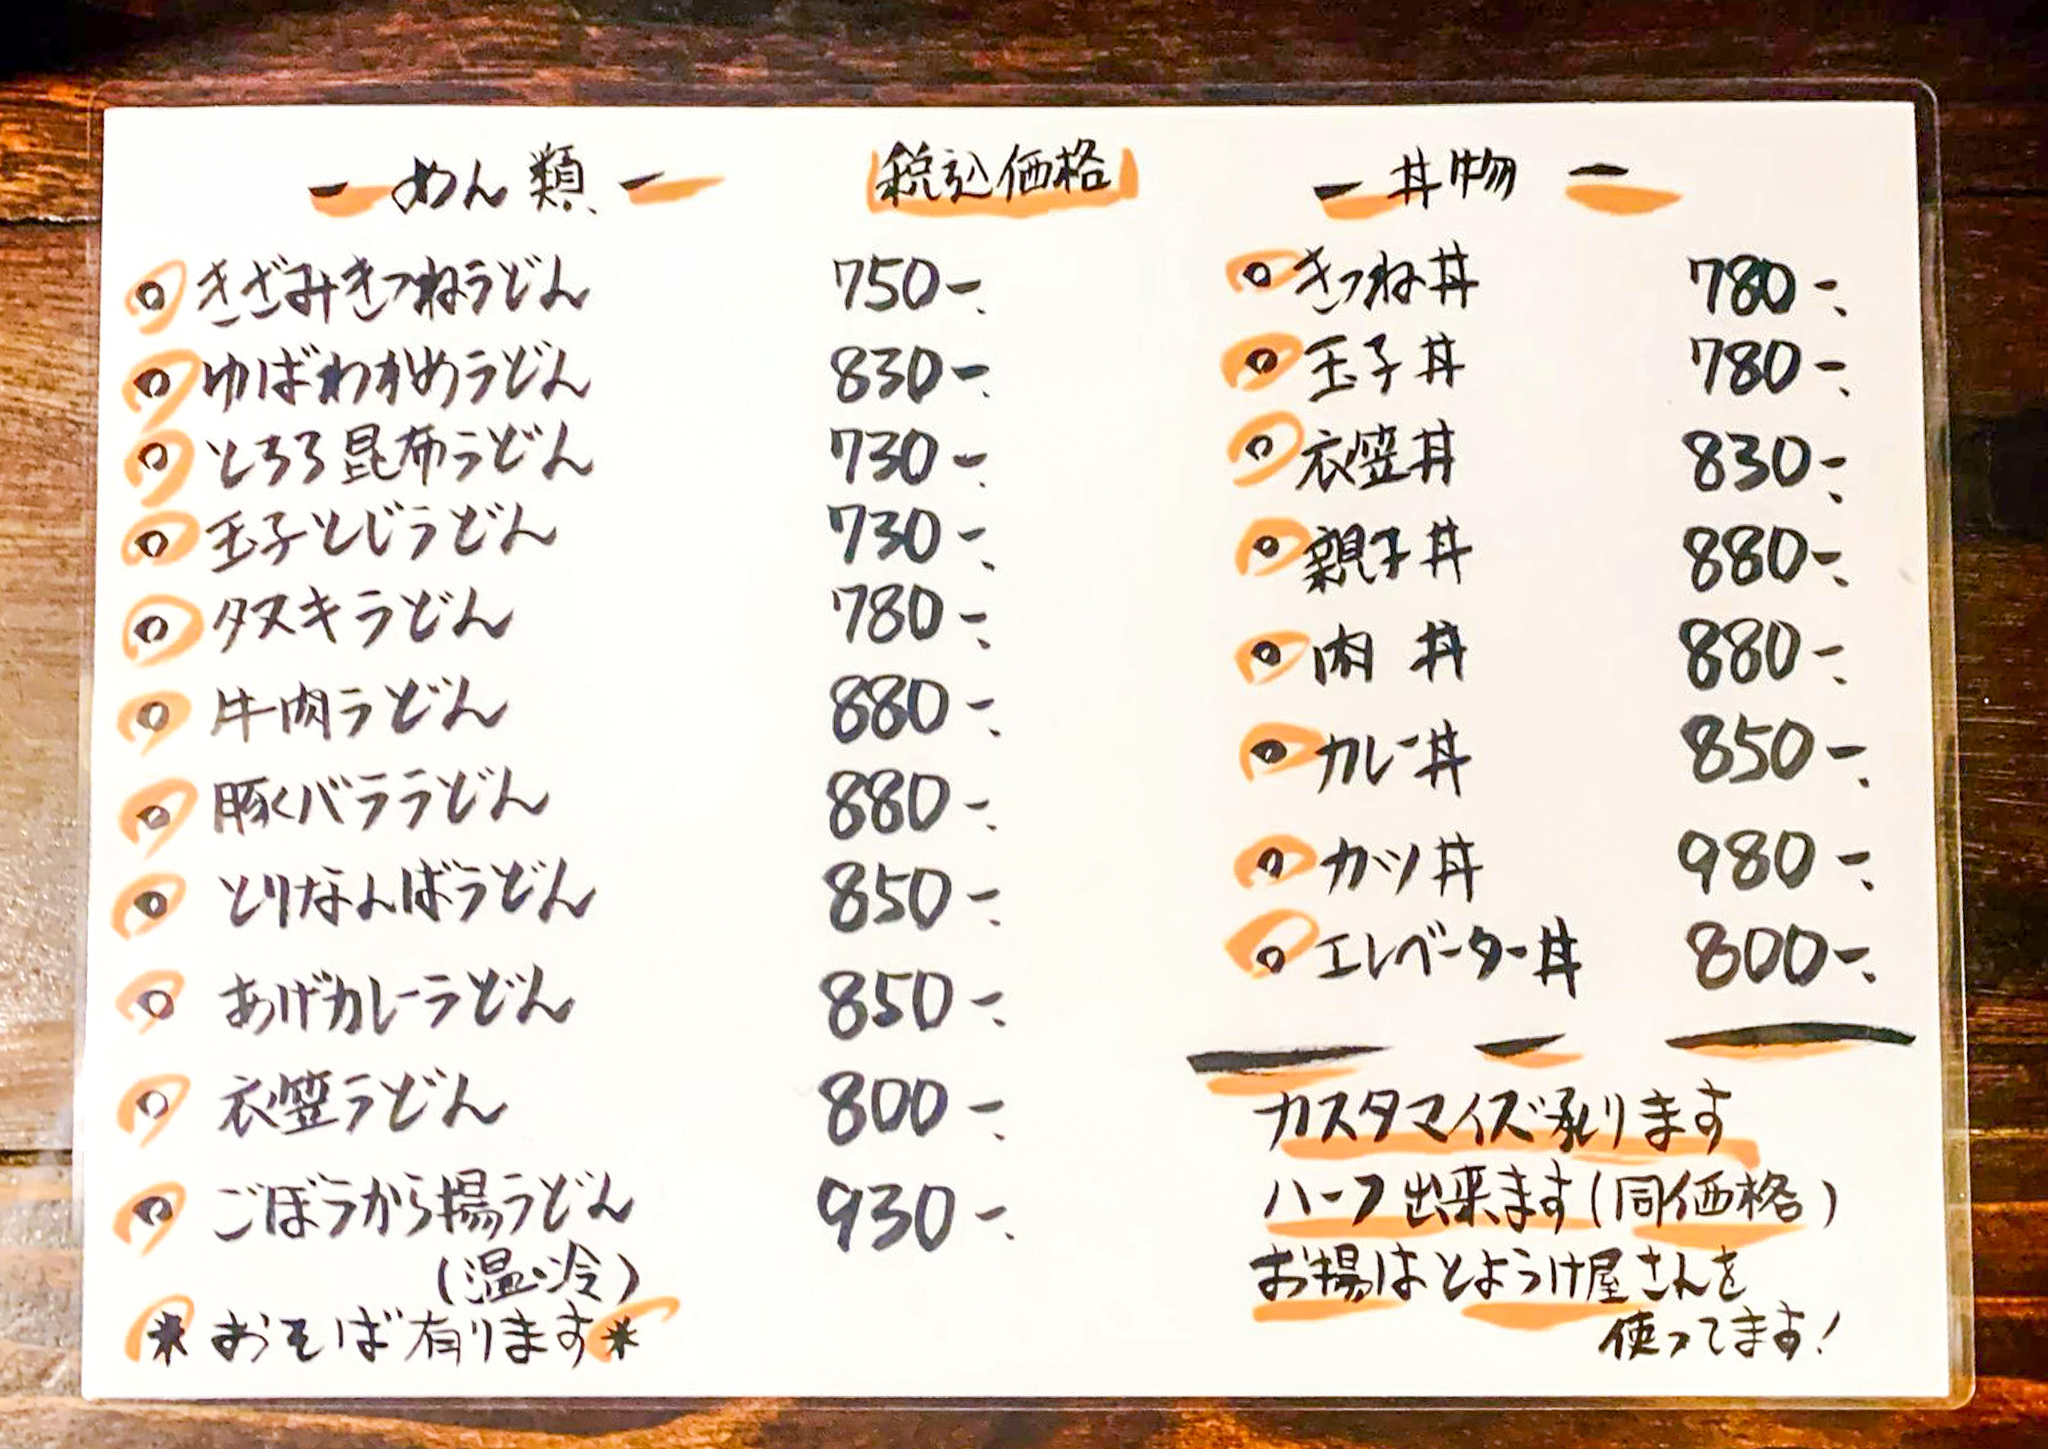 ー めん類 ー
税込価格
きざみきつねうどん 750-
ゆばわかめうどん 830-
とろろ昆布うどん 730-
玉子とじうどん 730-
タヌキうどん 780-
牛肉うどん 880-
豚バラうどん 880-
とりなんばうどん 850-
あげカレーうどん 850-
衣笠うどん 800-
ごぼうから揚うどん 930-
(温・冷)
＊おそば有ります＊
ー 丼物 ー
きつね丼 780-
玉子丼 780-
衣笠丼 830-
親子丼 880-
肉丼 880-
カレー丼 850-
カツ丼 980-
エレベーター丼 800-
カスタマイズ承ります
ハーフ出来ます(同価格)
お揚はとようけ屋さんを
使ってます!